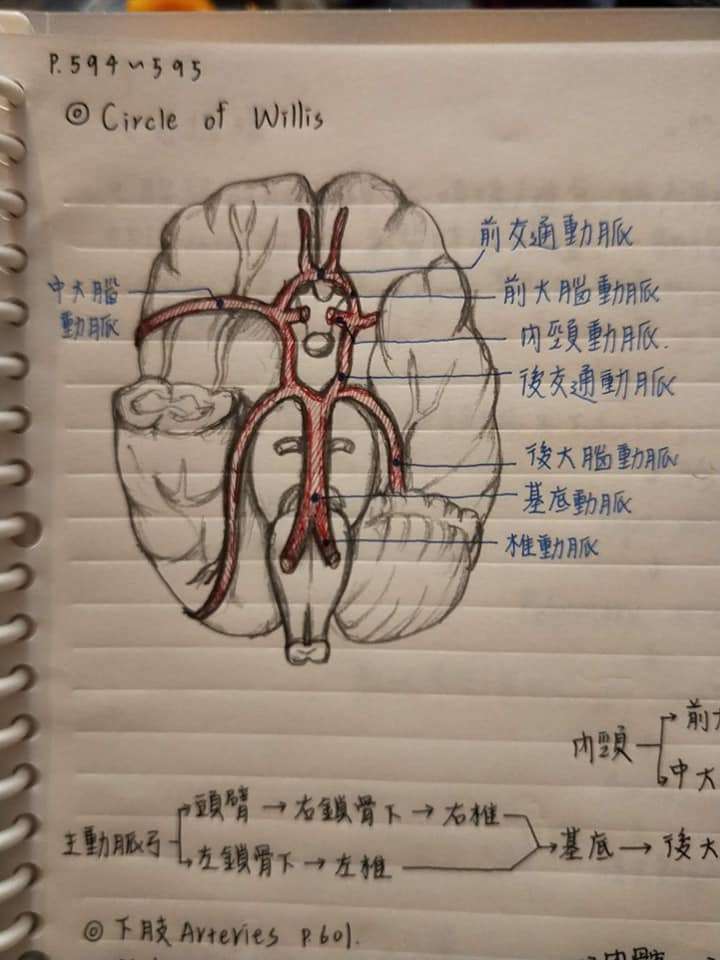 P.594~595
◎ Circle of Willis
前交通動脈
中大腦
動脈
前大腦動脈
內頸動脈.
後交通動脈
後大腦動脈
基底動脈
椎動脈
內頸 → 前大
→ 中大
主動脈弓 → 頭臂 → 右鎖骨下 → 右椎
→ 左鎖骨下 → 左椎 → 基底 → 後大
◎ 下肢 Arteries P.601.